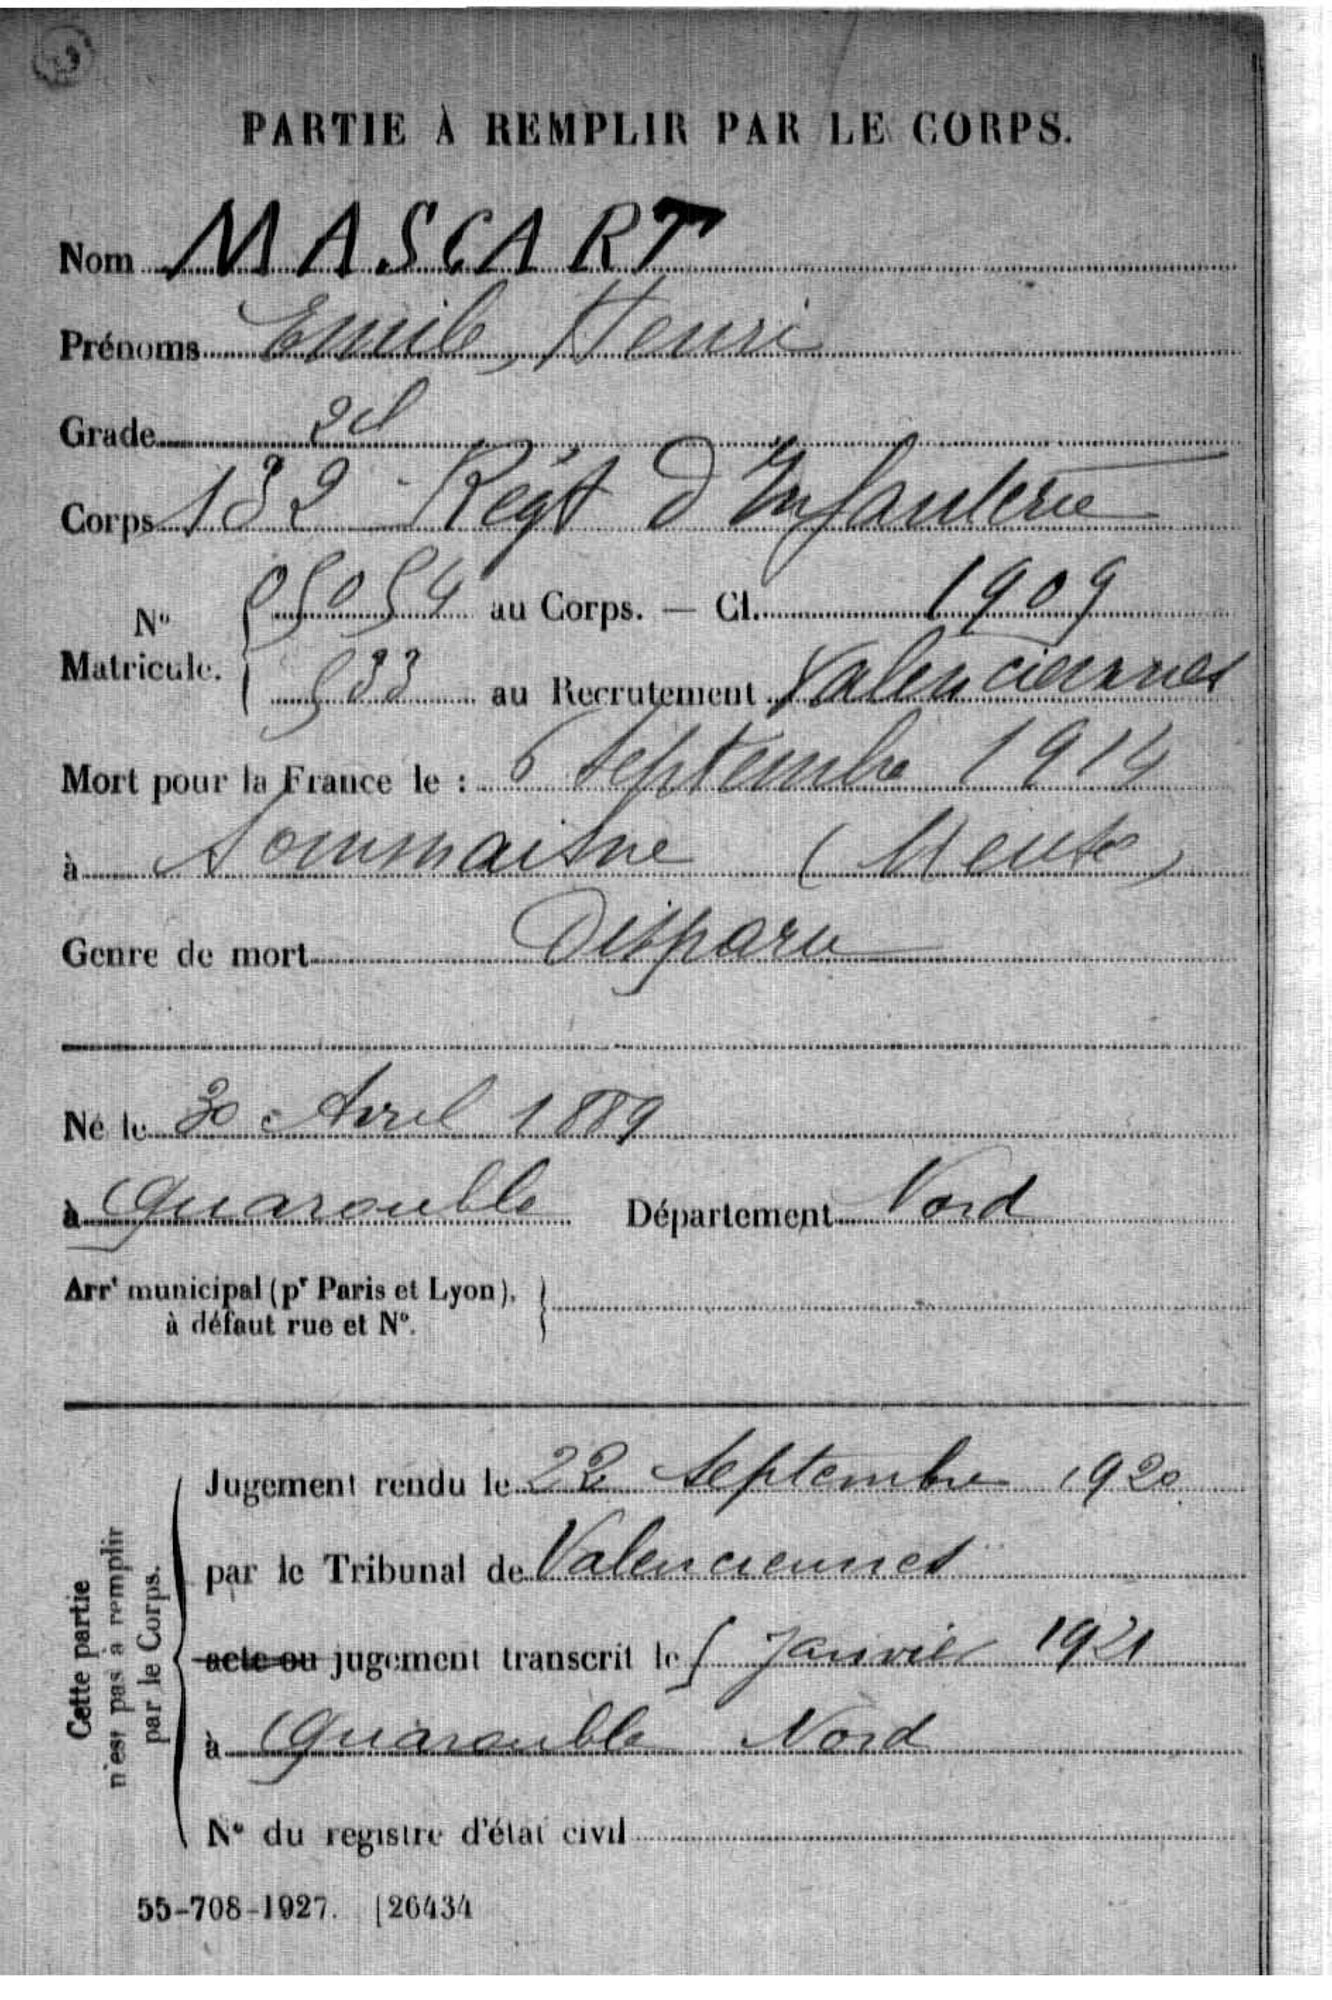 PARTIE À REMPLIR PAR LE CORPS.
Nom MASCART
Prénoms Emile, Henri
Grade 2d
Corps 132 Rég't d'Infanterie
N° Matricule. 05054 au Corps. — Cl. 1909
533 au Recrutement Valenciennes
Mort pour la France le : 6 septembre 1914
à Sommaisne (Meuse)
Genre de mort Disparu
Né le 30 Avril 1889
à Quarouble Département Nord
Arrt municipal (pr Paris et Lyon),
à défaut rue et N°.
Cette partie
n'est pas à remplir
par le Corps.
Jugement rendu le 22 septembre 1920
par le Tribunal de Valenciennes
acte ou jugement transcrit le 5 janvier 1921
à Quarouble Nord
N° du registre d'état civil
55-708-1927. [26434